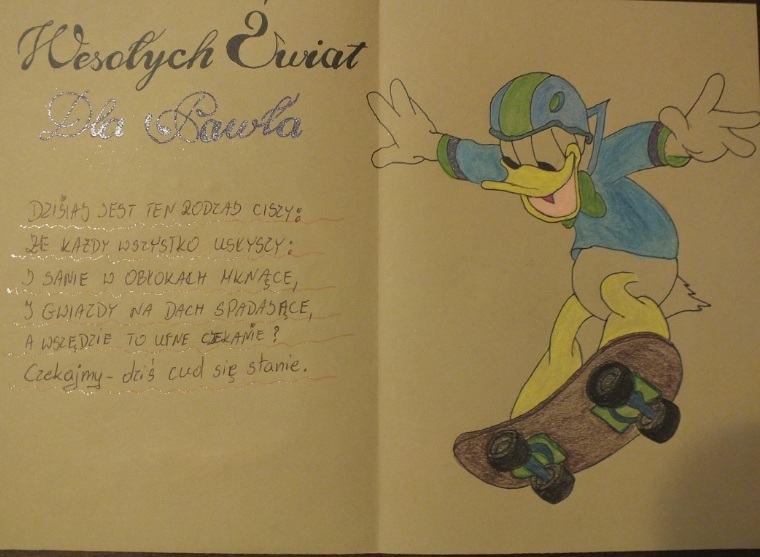 Wesołych Świat
Dla Pawła
DZISIAJ JEST TEN RODZAJ CISZY:
ŻE KAŻDY WSZYSTKO USŁYSZY:
I SANIE W OBŁOKACH MKNĄCE,
I GWIAZDY NA DACH SPADAJĄCE,
A WSZĘDZIE TO UFNE CZEKANIE?
Czekajmy - dziś cud się stanie.